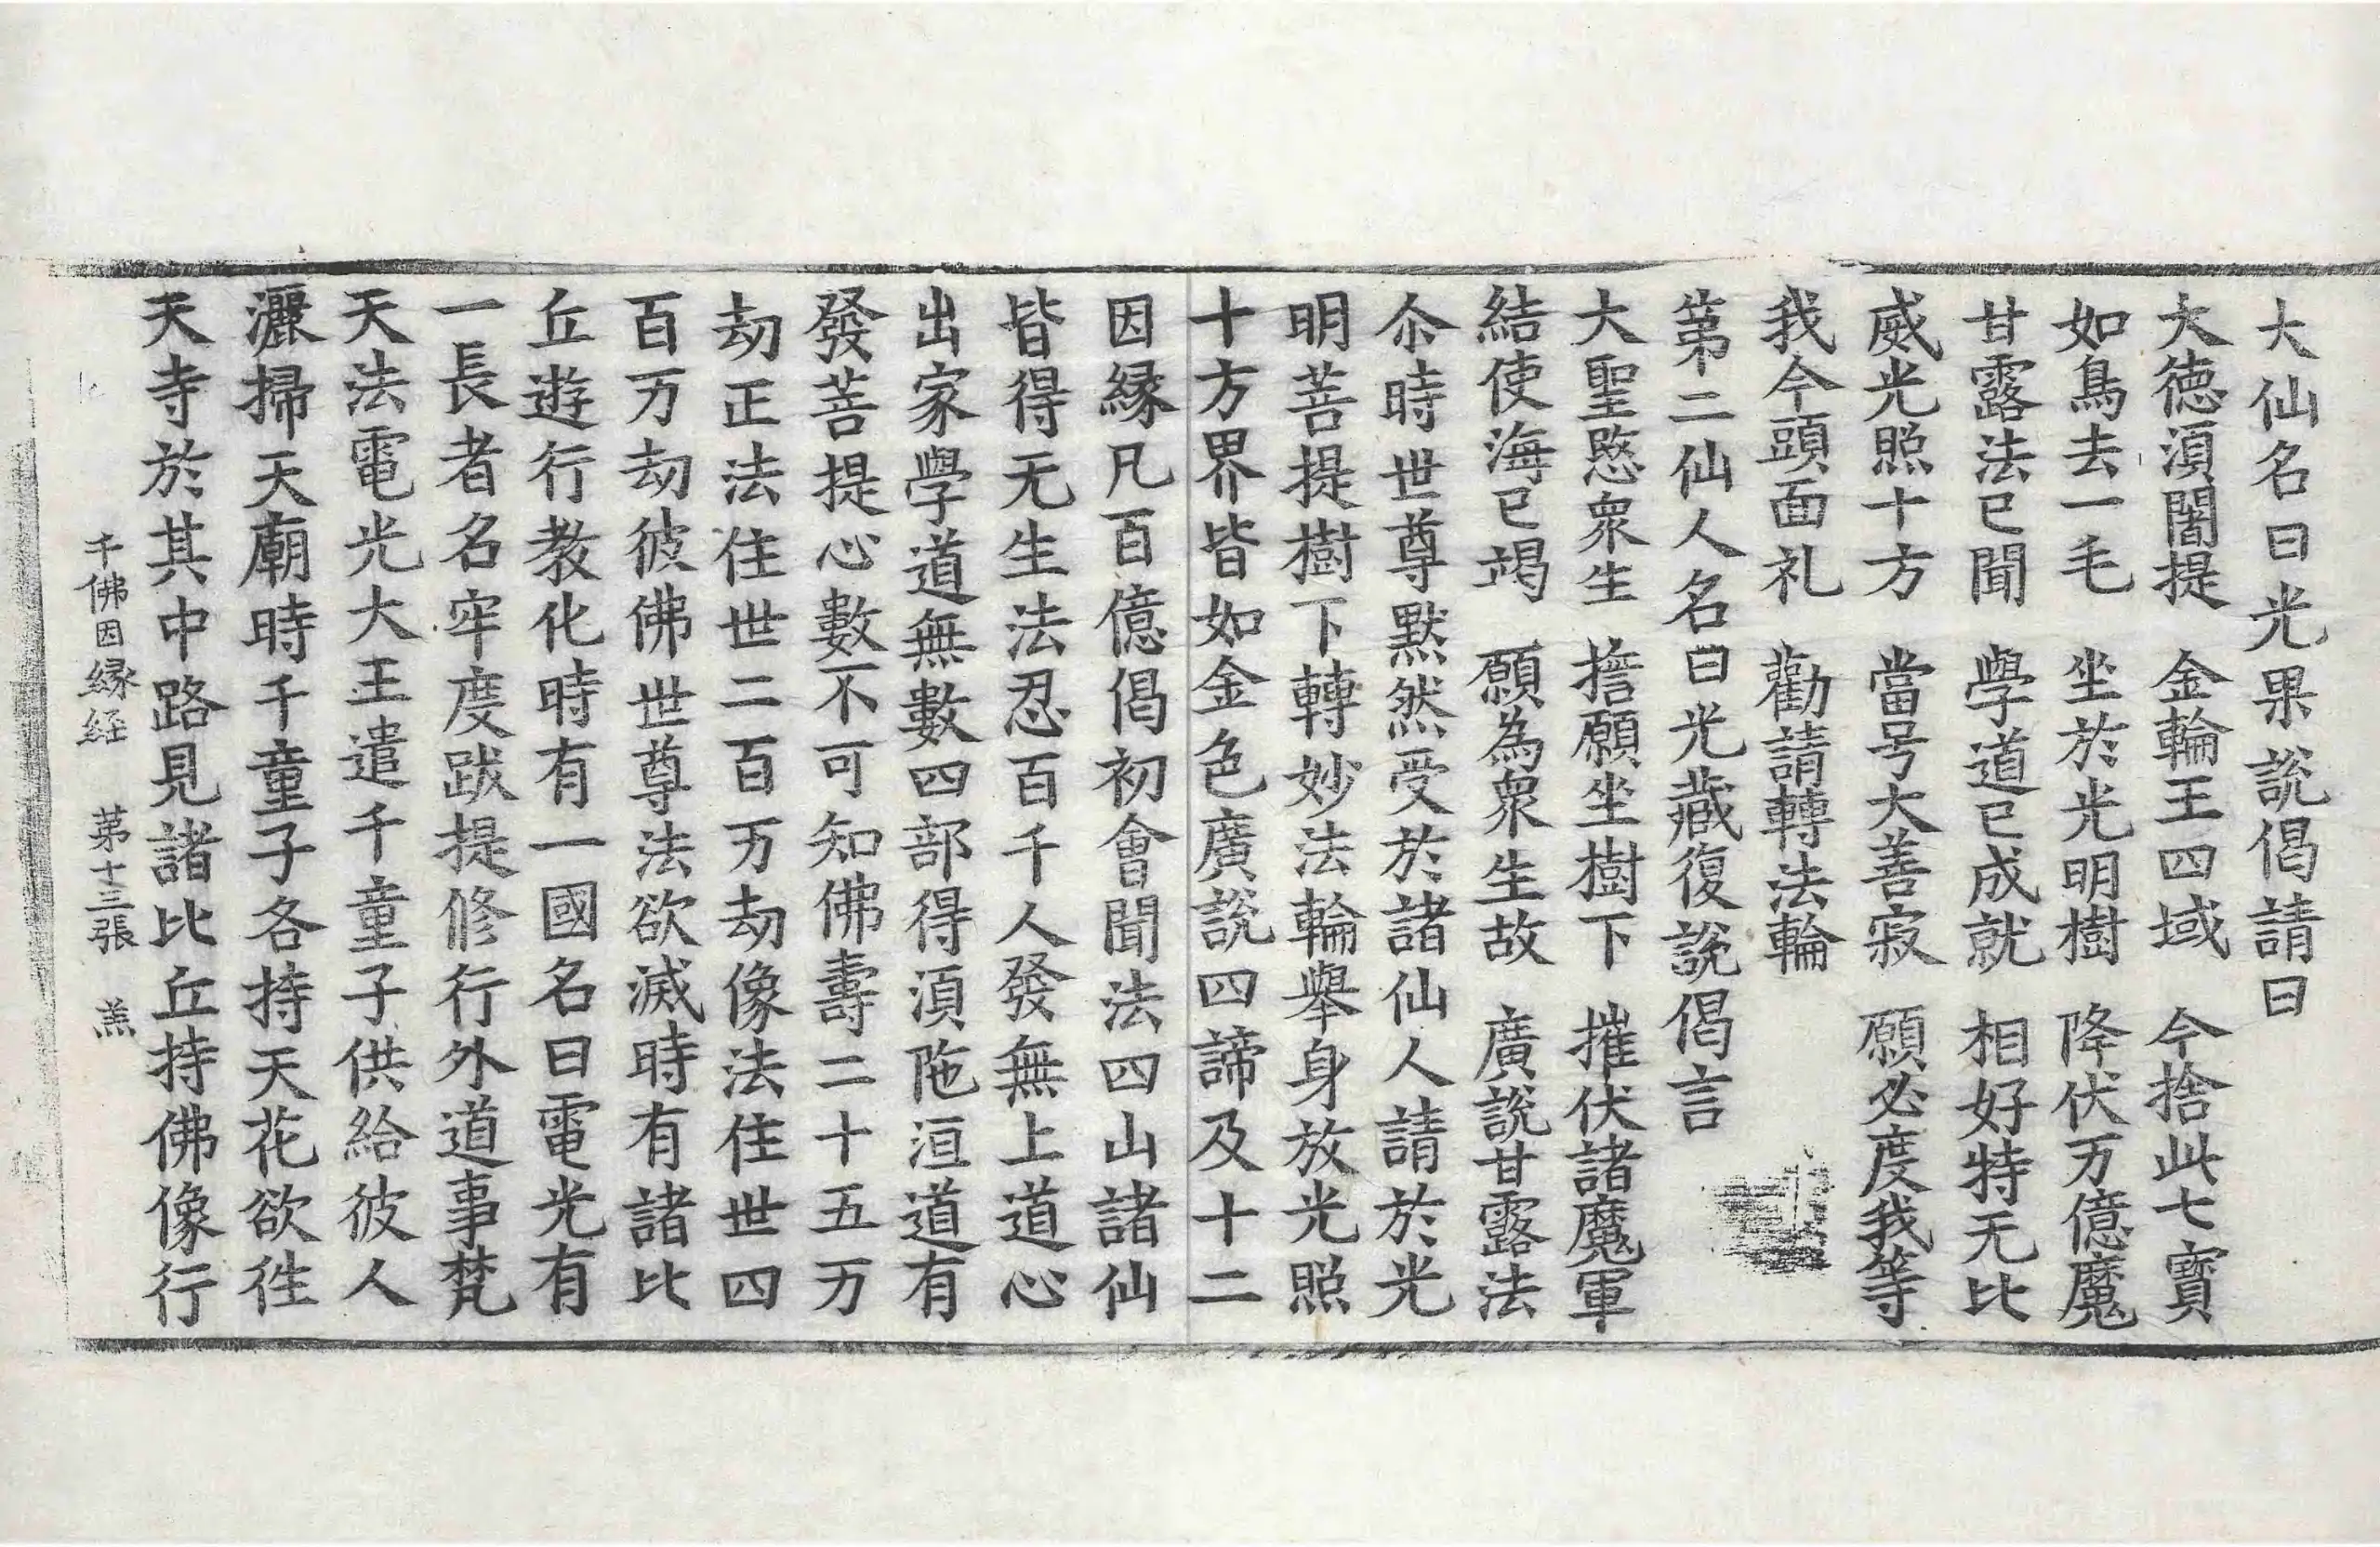 大仙名曰光果說偈請曰
大徳湏闍提 金輪王四域 今捨此七寶
如鳥去一毛 坐於光明樹 降伏万億魔
甘露法已聞 學道已成就 相好特无比
威光照十方 當号大善寂 願必度我等
我今頭面礼 勸請轉法輪
第二仙人名曰光蔵復說偈言
大聖愍衆生 擔願坐樹下 摧伏諸魔軍
結使海已竭 願為衆生故 廣說甘露法
尒時世尊默然受於諸仙人請於光
明菩提樹下轉妙法輪舉身放光照
十方界皆如金色廣說四諦及十二
因縁凡百億偈初會聞法四山諸仙
皆得无生法忍百千人發無上道心
出家學道無數四部得湏陁洹道有
發菩提心數不可知佛壽二十五万
劫正法住世二百万劫像法住世四
百万劫彼佛世尊法欲滅時有諸比
丘遊行教化時有一國名曰電光有
一長者名牢度跋提修行外道事梵
天法電光大王遣千童子供給彼人
灑掃天廟時千童子各持天花欲徃
天寺於其中路見諸比丘持佛像行
千佛因縁経 苐十三張 羔